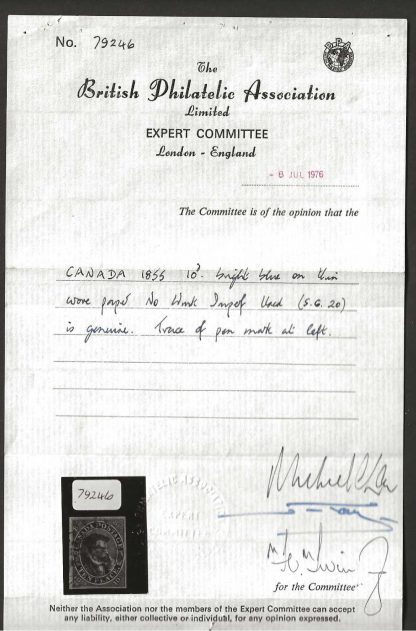 No. 79246
The
British Philatelic Association
Limited
EXPERT COMMITTEE
London - England
- 8 JUL 1976
The Committee is of the opinion that the
CANADA 1855 10d. bright blue on thin
wove paper No Wmk Imperf Used (S.G. 20)
is genuine. Trace of pen mark at left.
79246
CANADA POSTAGE
for the Committee
Neither the Association nor the members of the Expert Committee can accept
any liability, either collective or individual, for any opinion expressed.